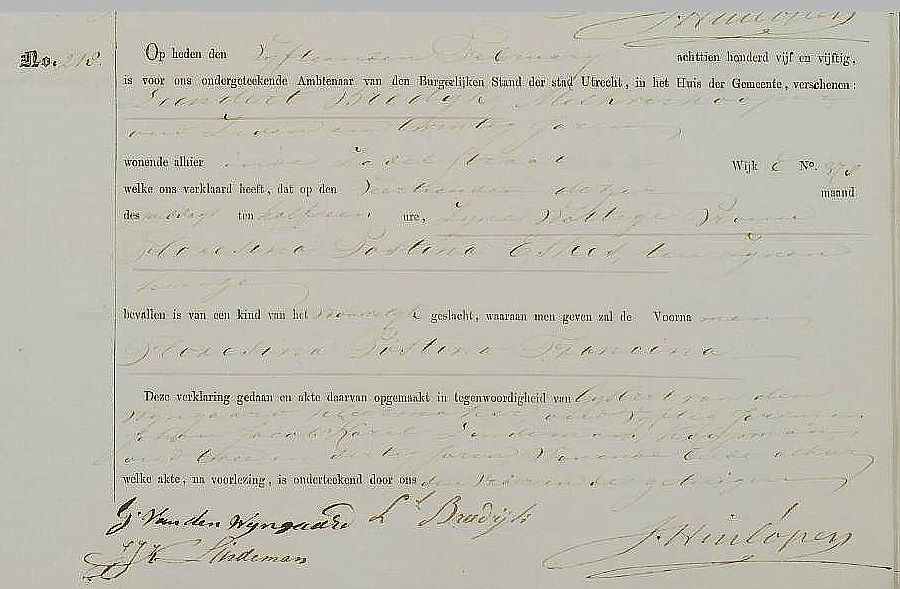 J. Hinlopen
No. 218. Op heden den Vyftienden February achttien honderd vijf en vijftig,
is voor ons ondergeteekende Ambtenaar van den Burgerlijken Stand der stad Utrecht, in het Huis der Gemeente, verschenen:
Leendert Bredijk,
oud Zeven en twintig Jaren,
wonende alhier in de straat Wijk E No. 378
welke ons verklaard heeft, dat op den Veertienden dezer maand
des middags ten half een ure, zyne Wettige Vrouw
Floresina Postena
bevallen is van een kind van het Vrouwelyk geslacht, waaraan men geven zal de Voorna men
Floresina Postena Francina
Deze verklaring gedaan en akte daarvan opgemaakt in tegenwoordigheid van Gysbert van den
Wyngaard
Jacob Karel Lindeman,
oud en dertig Jaren Wonende beide alhier
welke akte, na voorlezing, is onderteekend door ons den Vader en de getuigen
G. Van den Wyngaard L. Bredijk
J. K. Lindeman J. Hinlopen